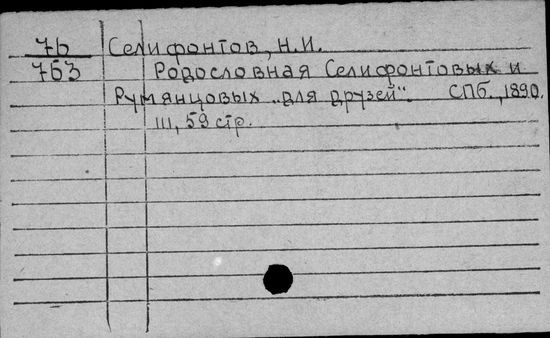 7б Селифонтов, Н.И.
763 Родословная Селифонтовых и
Румянцовых "для друзей". СПб., 1890.
III, 59 стр.